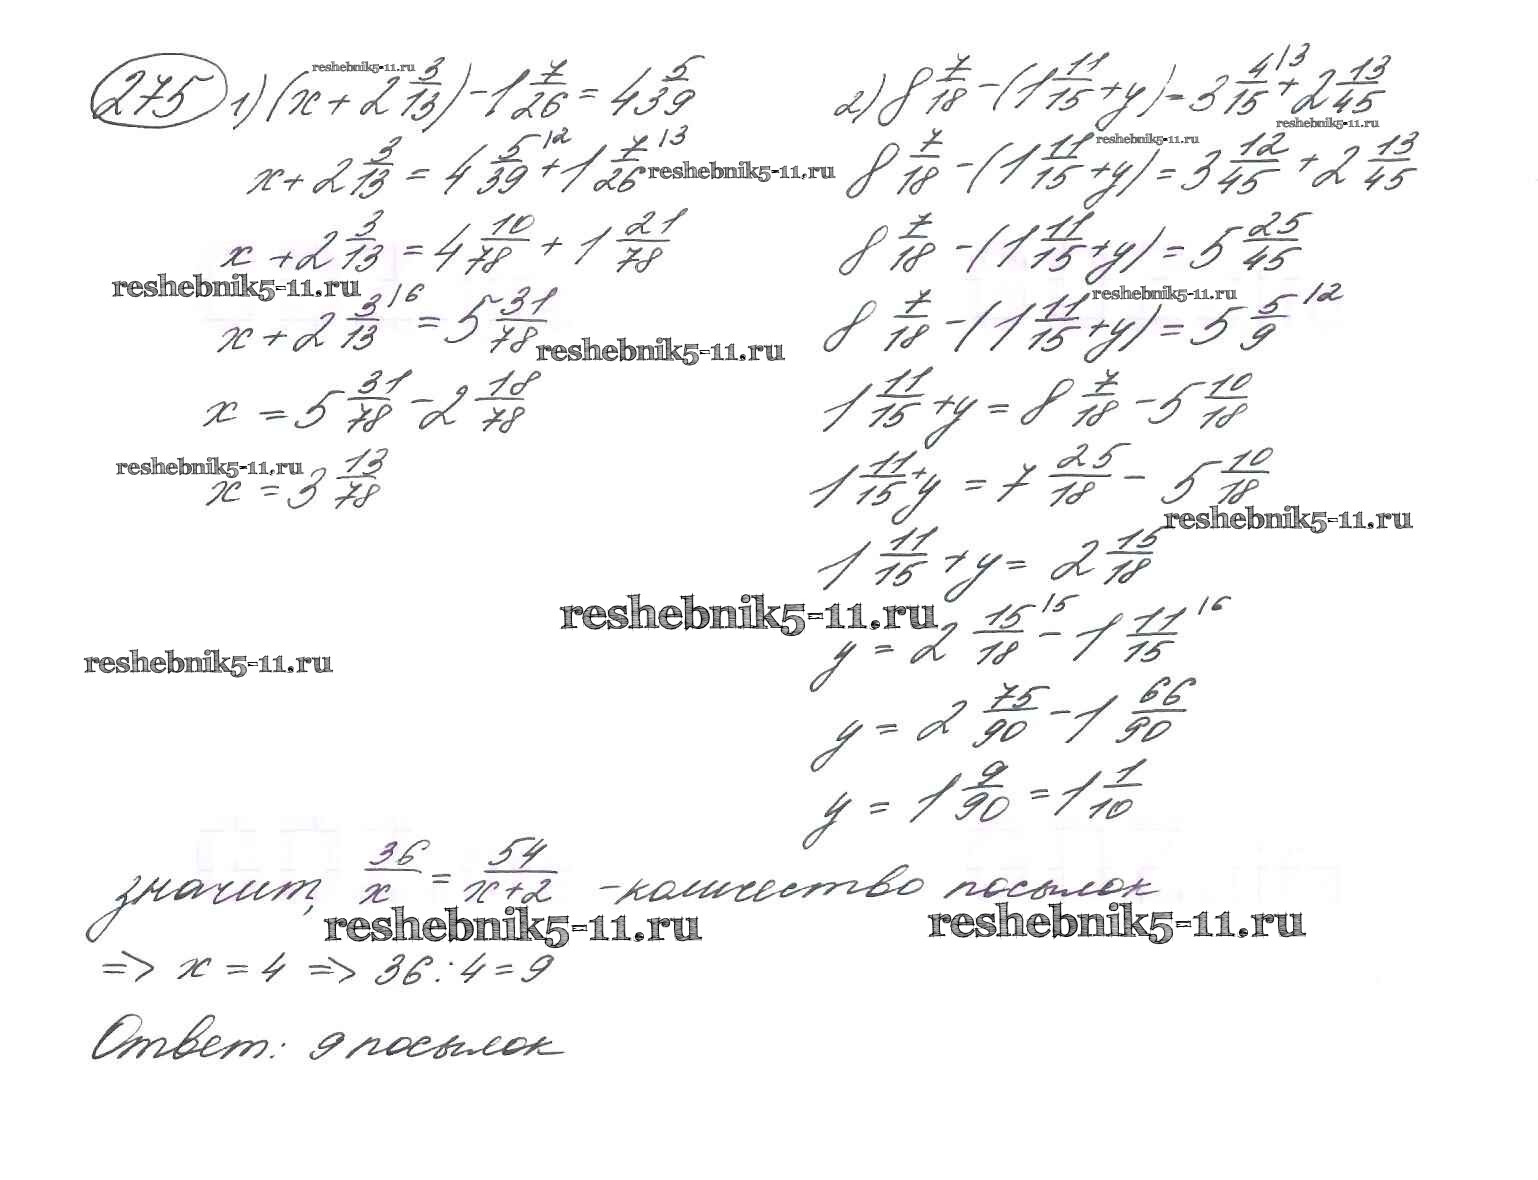 275 1) (x + 2 3/13) - 1 7/26 = 4 5/39
x + 2 3/13 = 4 5/39 |2 + 1 7/26 |3
x + 2 3/13 = 4 10/78 + 1 21/78
x + 2 3/13 |6 = 5 31/78
x = 5 31/78 - 2 18/78
x = 3 13/78
2) 8 7/18 - (1 11/15 + y) = 3 4/15 |3 + 2 13/45
8 7/18 - (1 11/15 + y) = 3 12/45 + 2 13/45
8 7/18 - (1 11/15 + y) = 5 25/45
8 7/18 - (1 11/15 + y) = 5 5/9 |2
1 11/15 + y = 8 7/18 - 5 10/18
1 11/15 + y = 7 25/18 - 5 10/18
1 11/15 + y = 2 15/18
y = 2 15/18 |5 - 1 11/15 |6
y = 2 75/90 - 1 66/90
y = 1 9/90 = 1 1/10
значит, 36/x = 54/(x+2) - количество посылок
=> x = 4 => 36 : 4 = 9
Ответ: 9 посылок
reshebnik5-11.ru
reshebnik5-11.ru
reshebnik5-11.ru
reshebnik5-11.ru
reshebnik5-11.ru
reshebnik5-11.ru
reshebnik5-11.ru
reshebnik5-11.ru
reshebnik5-11.ru
reshebnik5-11.ru
reshebnik5-11.ru
reshebnik5-11.ru
reshebnik5-11.ru